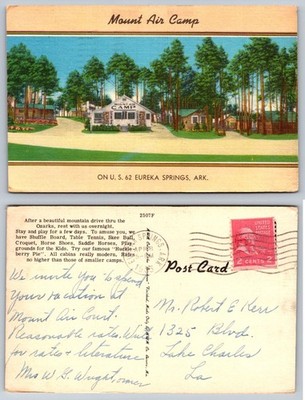 Mount Air Camp
CAMP
ON U. S. 62 EUREKA SPRINGS, ARK.
After a beautiful mountain drive thru the
Ozarks, rest with us overnight.
Stay and play for a few days. To amuse you, we
have Shuffle Board, Table Tennis, Skee Ball,
Croquet, Horse Shoes, Saddle Horses, Play-
grounds for the Kids. Try our famous "Huckle-
berry Pie". All cabins really modern. Rates
no higher than those of smaller camps.
2507F
We invite you to spend
your vacation at
Mount Air Court.
Reasonable rates. Write
for rates & literature
Mrs W. G. Wright, owner
Post Card
2 CENTS 2
Mr. Robert E Kerr
1325 Blvd.
Lake Charles
La